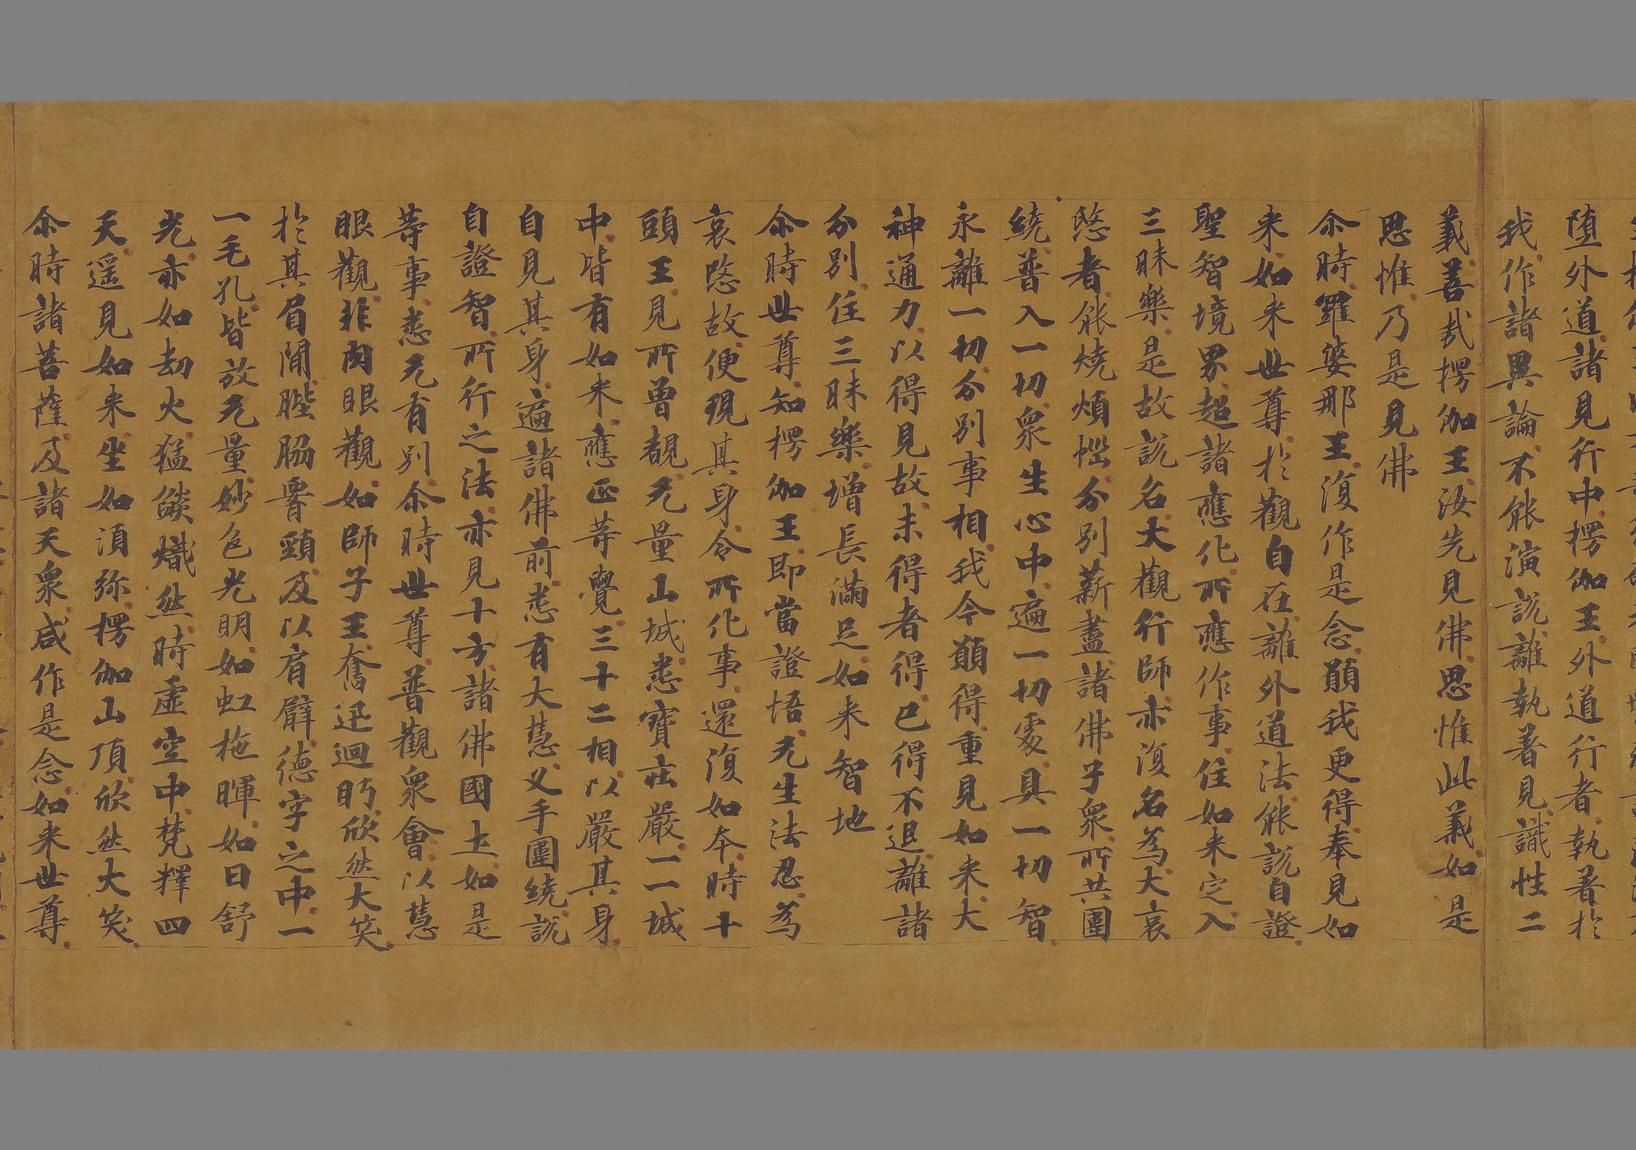 堕外道諸見行中楞伽王外道行者執著於
我作諸異論不能演說離執著見識性二
義善哉楞伽王汝先見佛思惟此義如是
思惟乃是見佛
尒時羅婆那王復作是念願我更得奉見如
来如来世尊於觀自在離外道法能說自證
聖智境界超諸應化所應作事住如来定入
三昧樂是故說名大觀行師亦復名為大哀
愍者能燒煩惱分別薪盡諸佛子衆所共圍
繞普入一切衆生心中遍一切處具一切智
永離一切分別事相我今願得重見如来大
神通力以得見故未得者得已得不退離諸
分別住三昧樂增長滿足如来智地
尒時世尊知楞伽王即當證悟无生法忍為
哀愍故便現其身令所化事還復如本時十
頭王見所曾覩无量山城悉寶莊嚴一一城
中皆有如来應正等覺三十二相以嚴其身
自見其身遍諸佛前悉有大慧夜叉圍繞說
自證智所行之法亦見十方諸佛國土如是
等事悉无有別尒時世尊普觀衆會以慧
眼觀非肉眼觀如師子王奮迅迴眄欣然大笑
於其眉間髀脇署頸及以肩臂德字之中一
一毛孔皆放无量妙色光明如虹拖暉如日舒
光亦如劫火猛焰熾然時虛空中梵釋四
天遥見如来坐如湏弥楞伽山頂欣然大笑
尒時諸菩薩及諸天衆咸作是念如来世尊